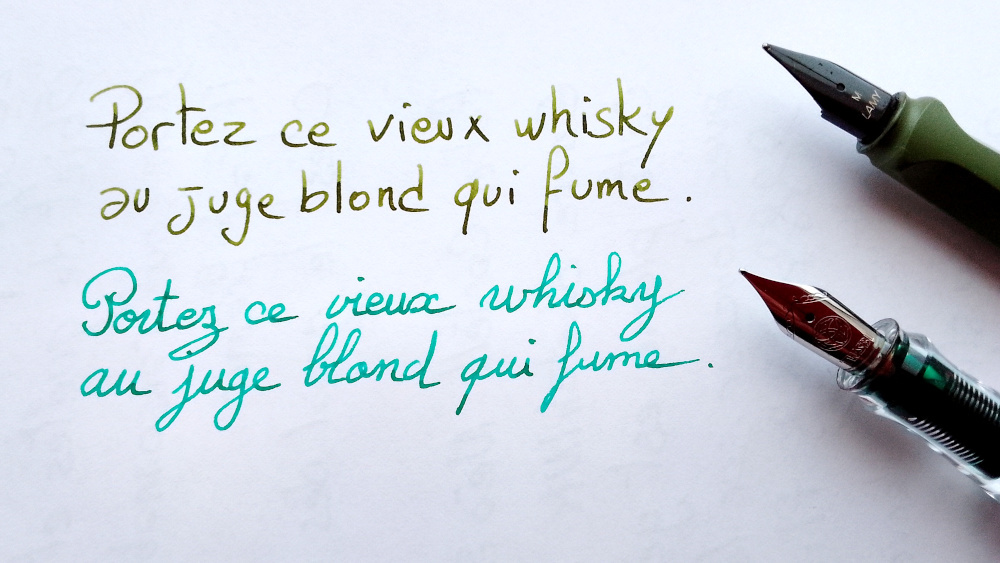 Portez ce vieux whisky
au juge blond qui fume.
Portez ce vieux whisky
au juge blond qui fume.
M
LAMY